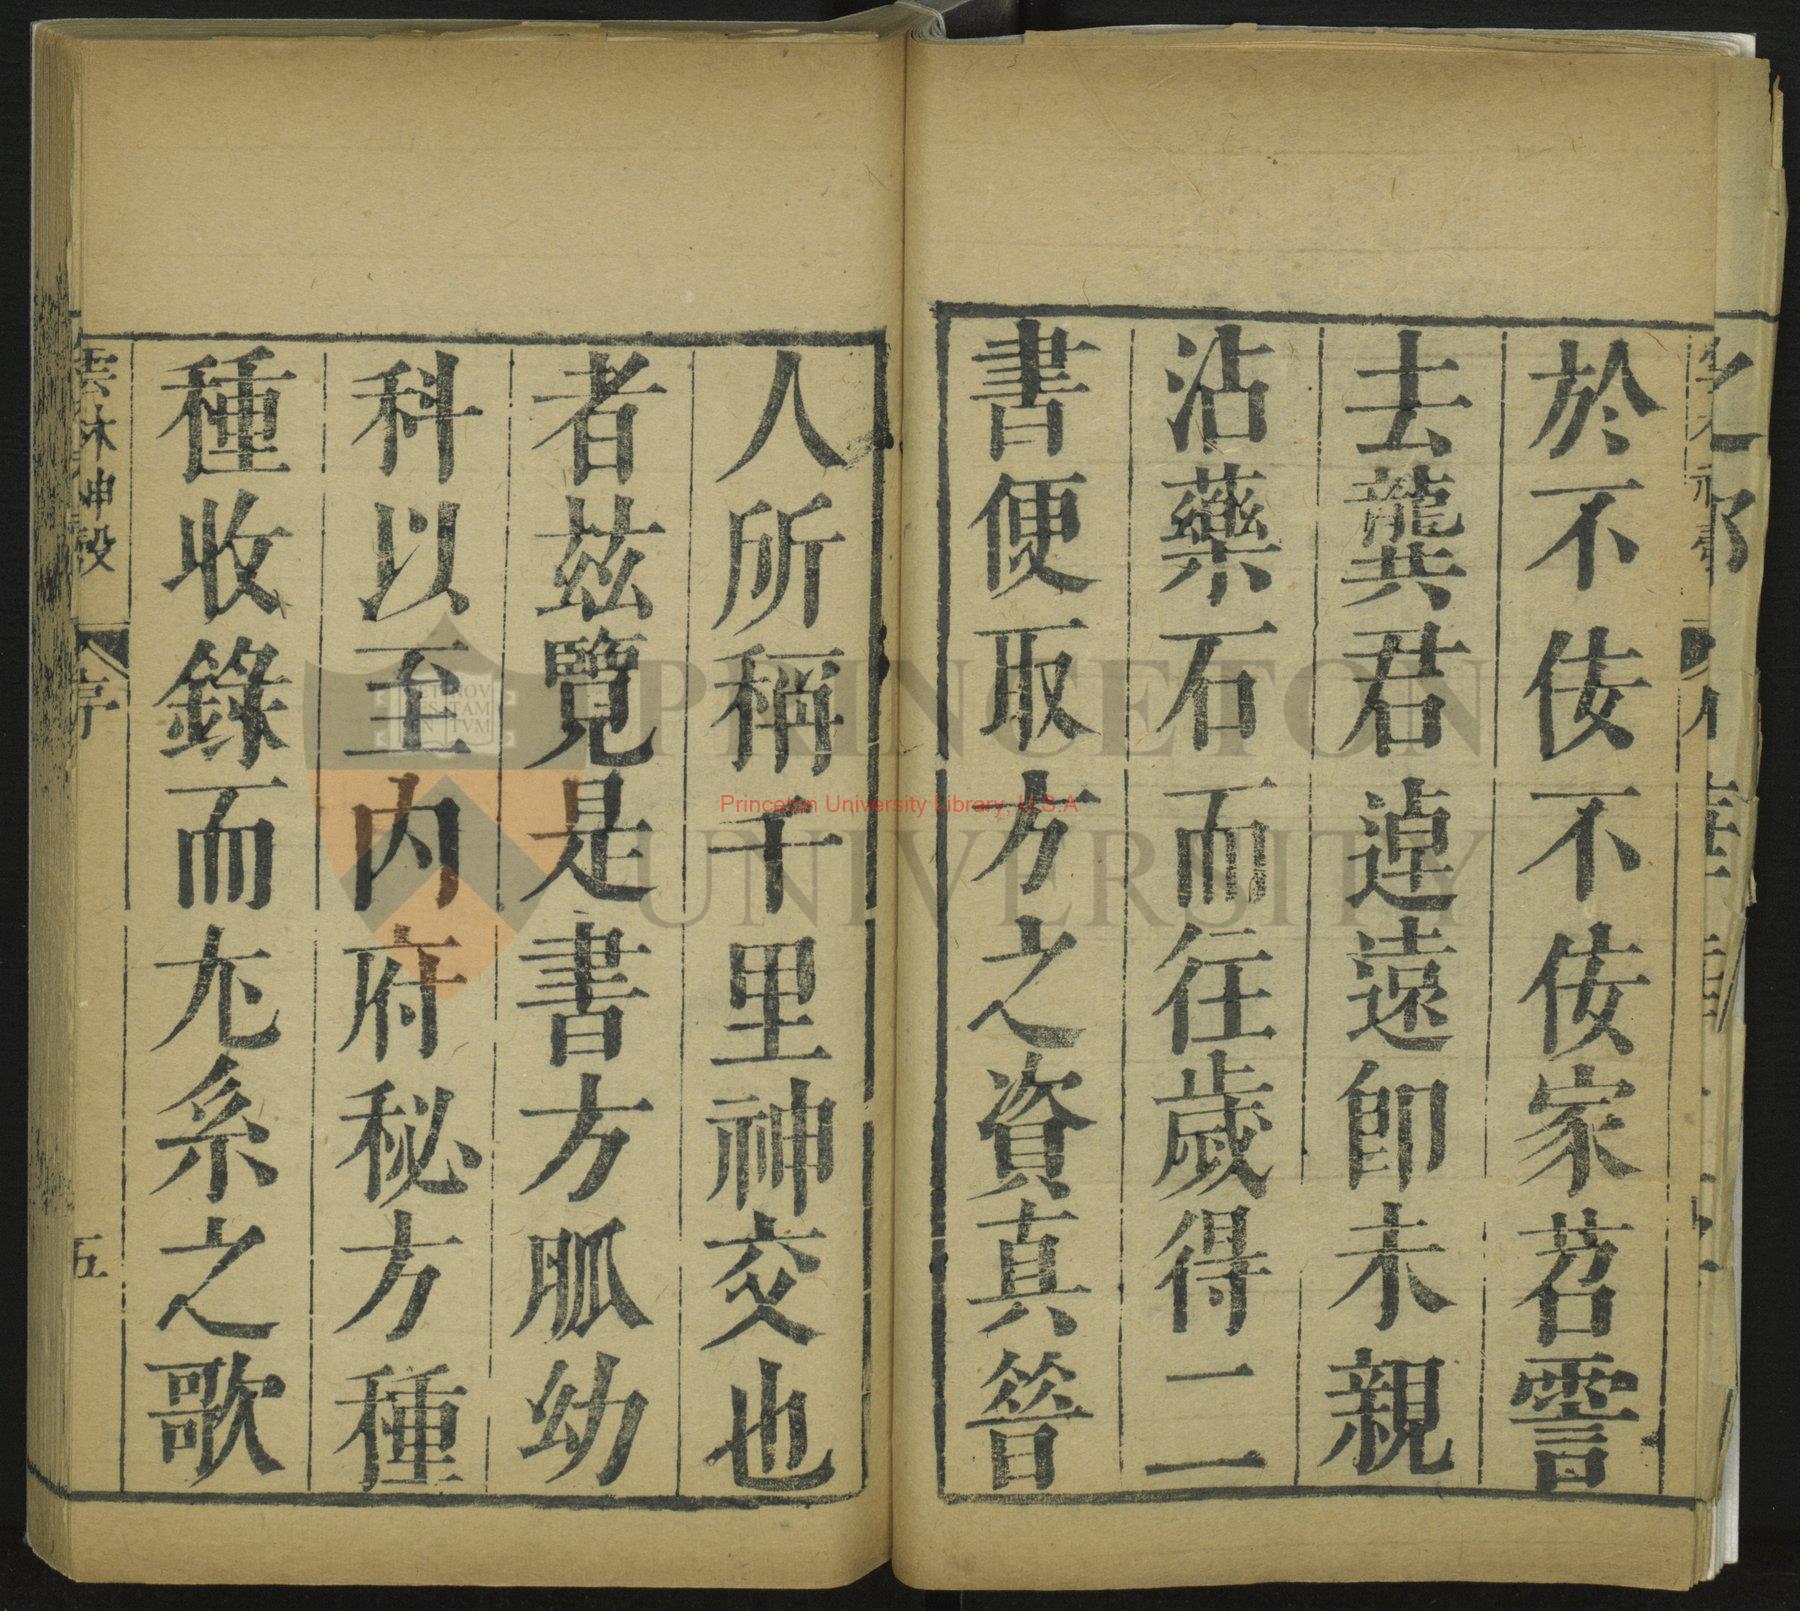 於不佞不佞家苕霅
去龔君逴遠卽未親
沾藥石而往歲得二
書便取方之資真晉
人所稱千里神交也
者茲覽是書方脈幼
科以至内府秘方種
種收錄而尤系之歌
雲林神彀
序
五
PRINCETON
UNIVERSITY
Princeton University Library, U.S.A